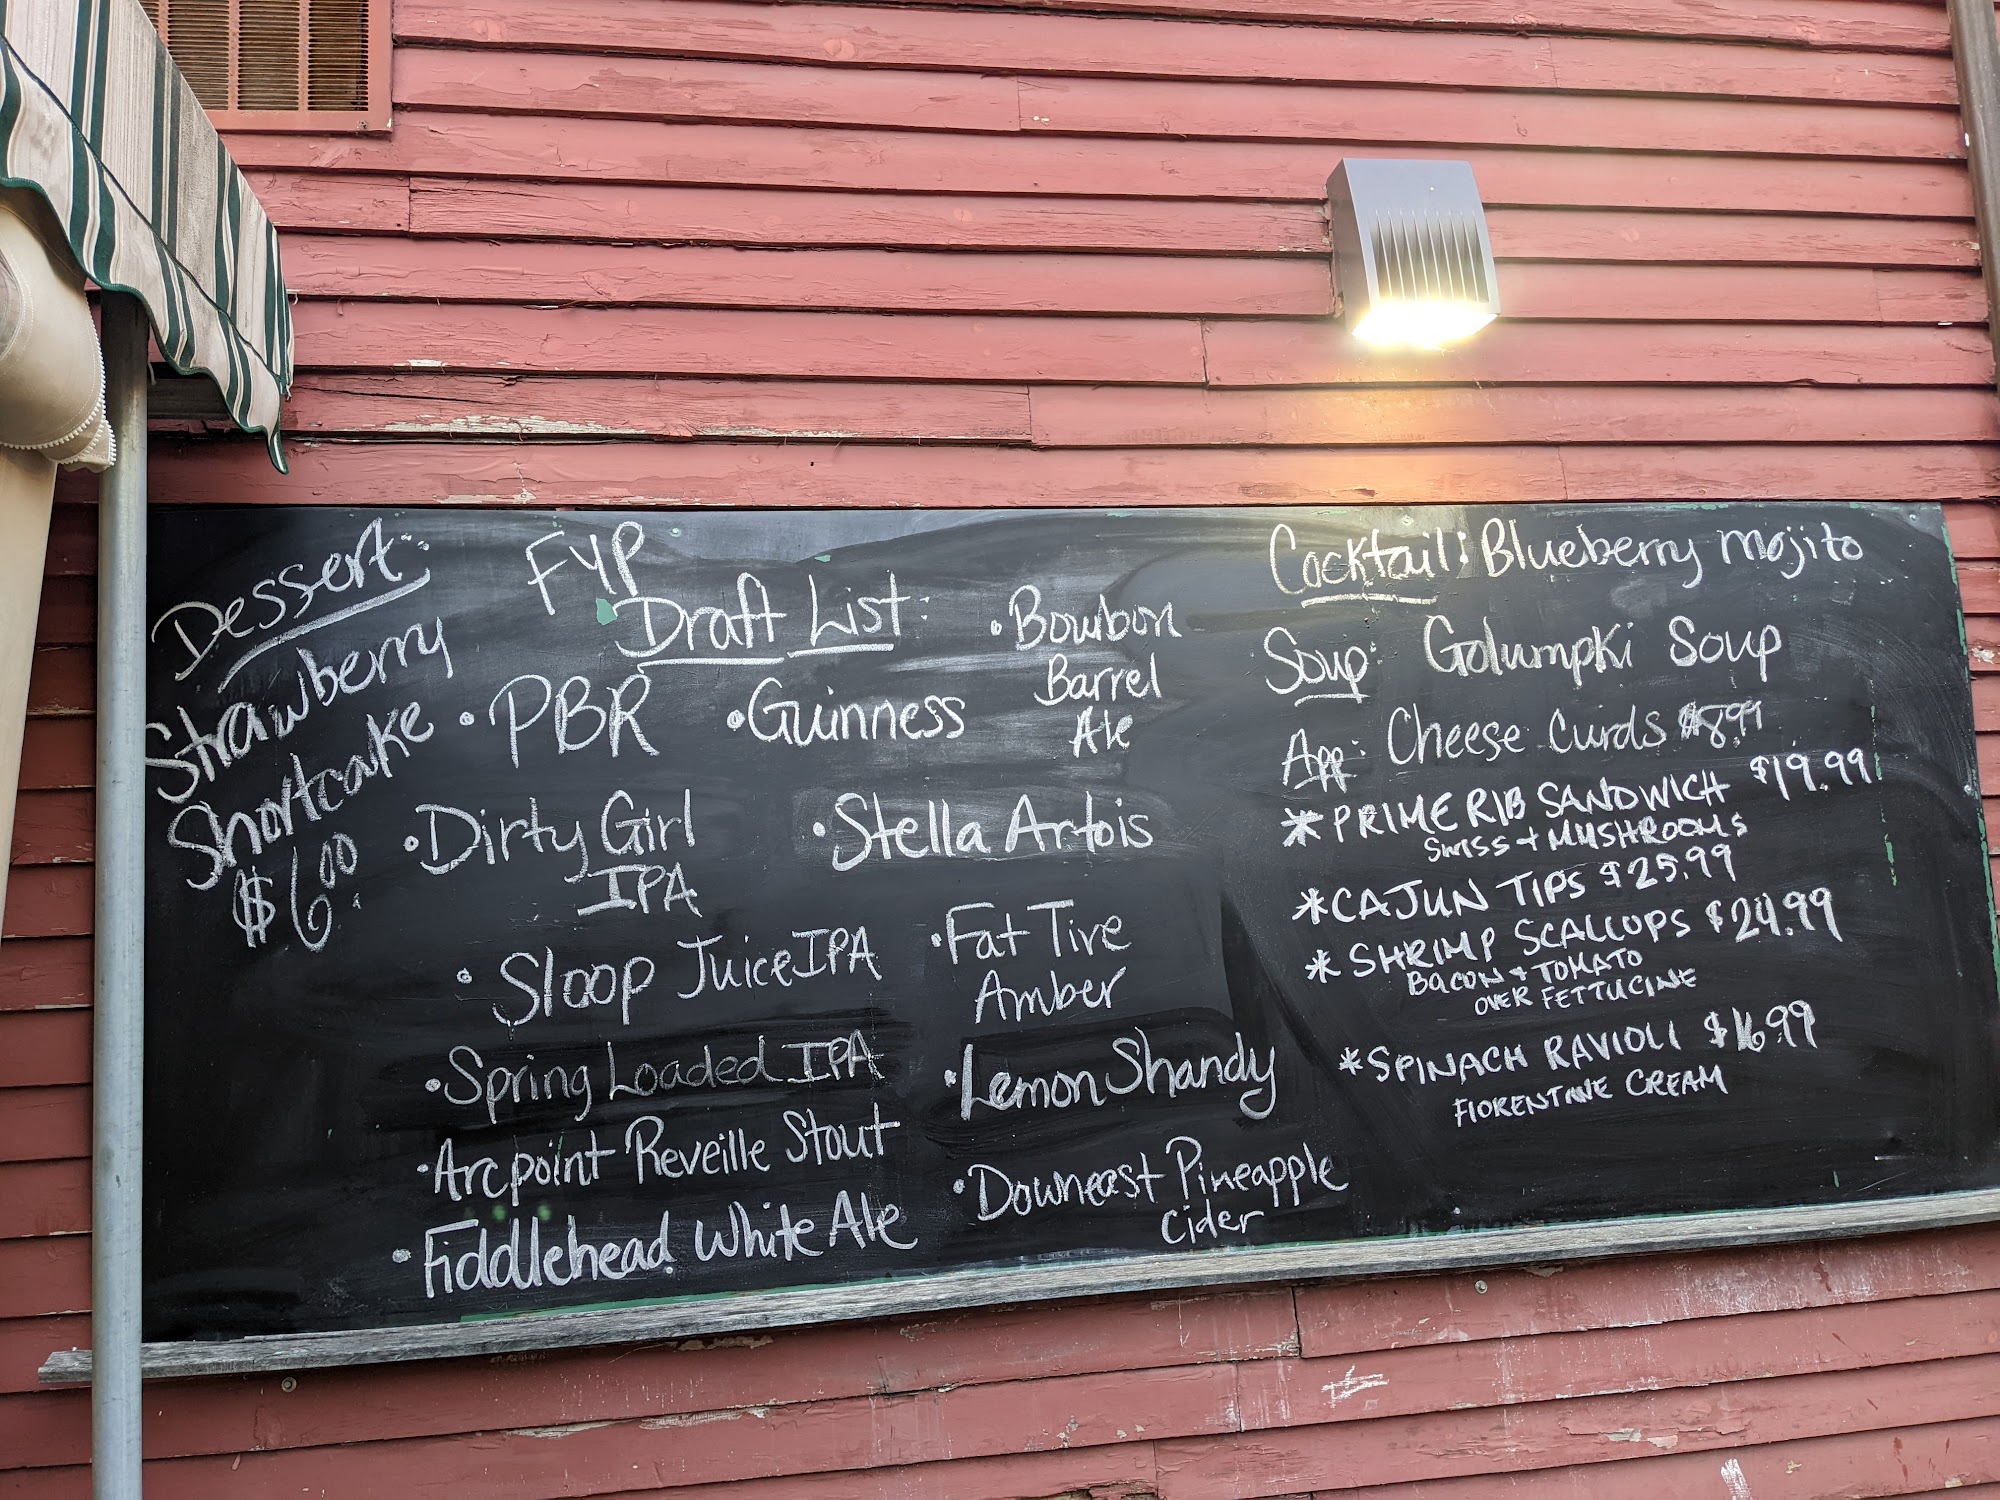 Dessert:
Strawberry
Shortcake
$6.00
FYP
Draft List:
• PBR
• Guinness
• Bourbon
Barrel
Ale
• Dirty Girl
IPA
• Stella Artois
• Sloop Juice IPA
• Fat Tire
Amber
• Spring Loaded IPA
• Lemon Shandy
• Arcpoint Reveille Stout
• Downeast Pineapple
Cider
• Fiddlehead White Ale
Cocktail: Blueberry Mojito
Soup: Golumpki Soup
App: Cheese Curds $8.99
* PRIME RIB SANDWICH $19.99
SWISS + MUSHROOMS
* CAJUN TIPS $25.99
* SHRIMP SCALLOPS $24.99
BACON + TOMATO
OVER FETTUCINE
* SPINACH RAVIOLI $16.99
FLORENTINE CREAM